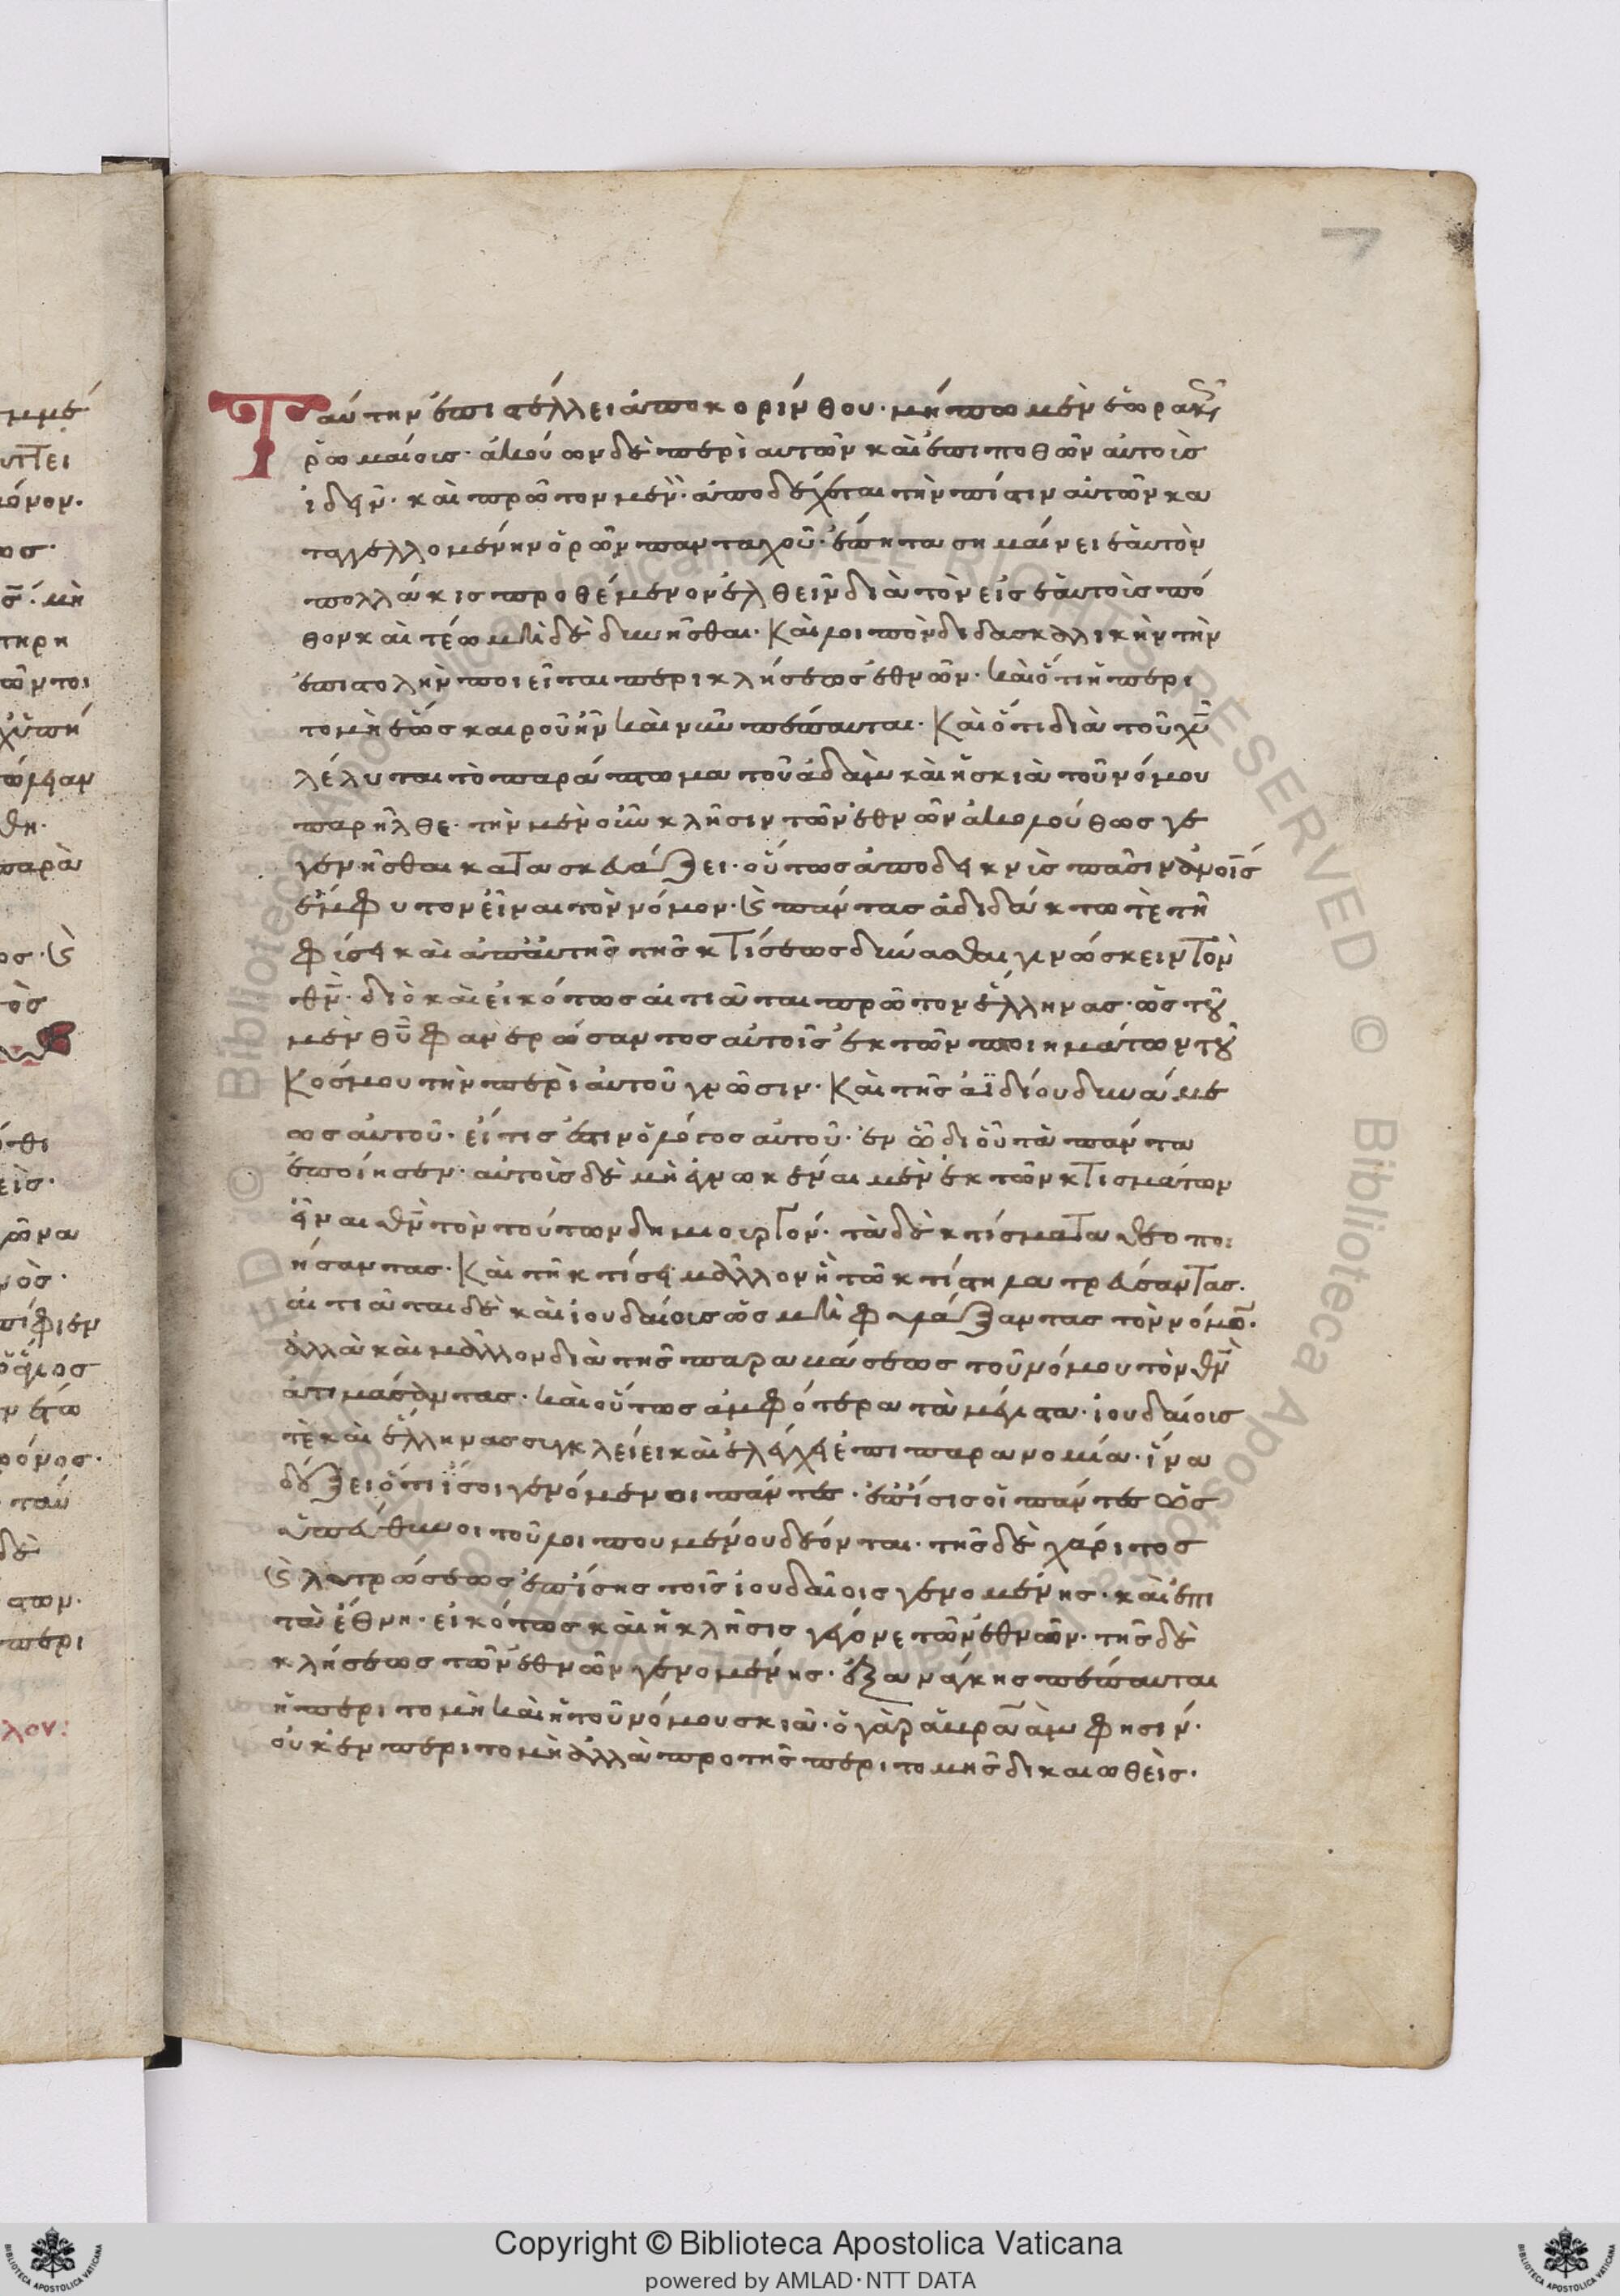 7
Ταύτην ἐπιστέλλει ἀπὸ κορίνθου· μήπω μὲν ἑωρακὼς
ῥωμαίοις· ἀκούων δὲ περὶ αυτῶν καὶ ἐπιποθῶν αὐτοὶς
ἰδεῖν· καὶ πρῶτον μὲν· ἀποδέχεται τὴν πίστιν αὐτῶν κα
ταγγελλομένην ὁρῶν πανταχοῦ· ἔπητα σημαίνει ἑαυτὸν
πολλάκις προθέμενον ἐλθεῖν διὰ τὸν εἰς ἑαυτοὶς πό
θον καὶ τέως μὴ δεδυνῆσθαι· Καὶ λοιπὸν διδασκαλικὴν τὴν
ἐπιστολὴν ποιεῖται περὶ κλήσεως ἐθνῶν· καὶ ὅτι ἡ περι
τομὴ ἕως καιροῦ ἦν καὶ νῦν πέπαυται· Καὶ ὅτι διὰ τοῦ χῦ
λέλυται τὸ παράπτωμα τοῦ ἀδὰμ καὶ ἡ σκιὰ τοῦ νόμου
παρῆλθε· τὴν μὲν οὖν κλῆσιν τῶν ἐθνῶν ἀκολούθως γε
γενῆσθαι κατασκευάζει· οὕτως ἀποδεικνὶς πᾶσιν ἀνοῖς
ἔμφυτον εἶναι τὸν νόμον· καὶ πάντας ἀδιδάκτω τὲ τῆ
φύσει καὶ ἀπ αυτῆς τῆς κτίσεως δύνασθαι γινώσκειν τὸν
θν̄· διὸ καὶ εἰκότως αἰτιᾶται πρῶτον ἕλληνας· ὡς τοῦ
μὲν θῦ φανερώσαντος αὐτοῖς ἐκ τῶν ποιημάτων τοῦ
Κοσμου τὴν περὶ αὐτοῦ γνῶσιν· Καὶ τῆς ἀϊδίου δυνάμε
ως αὐτοῦ· εἴτις ἐστιν ὁ λόγος αὐτοῦ· ἐν ὧ δι οὗ τὰ πάντα
ἐποίησεν· αὐτοὶς δὲ μὴ ἐγνωκέναι μὲν ἐκ τῶν κτισμάτων
εἶναι θν̄ τὸν τούτων δημιουργόν· τὰ δὲ κτίσματα θεοποι
ήσαντας· Καὶ τῆ κτίσει μᾶλλον ἢ τῶ κτίστη λατρεύσαντας·
αἰτιᾶται δὲ καὶ ἰουδαίοις ὡς μὴ φυλάξαντας τὸν νόμον·
ἀλλὰ καὶ μᾶλλον διὰ τῆς παραβάσεως τοῦ νόμου τὸν θν̄
ἀτιμάσαντας· καὶ οὕτως ἀμφότερα τὰ μέγιστα· ἰουδαίοις
τὲ καὶ ἕλληνας συγκλείει καὶ ἐλέγχει ἐπι παρανομία· ἵνα
δείξει ὅτι ἴσοι γενόμενοι πάντες· ἐπίσις οἱ πάντες ὡς
ὑπεύθυνοι τοῦ λοιπου μένου δέονται· τῆς δὲ χάριτος
καὶ λυτρώσεως ἐπίσης τοῖς ἰουδαῖοις γενομένης· καὶ ἐπι
τὰ ἔθνη· εἰκότως καὶ ἡ κλῆσις γέγονε τῶν ἐθνῶν· τῆς δὲ
κλήσεως τῶν ἐθνῶν γενομένης· ἐξ ανάγκης πέπαυται
ἡ περιτομὴ καὶ ἡ τοῦ νόμου σκιὰ· ὁ γὰρ ἀβραὰμ φησίν·
οὐκ ἐν περιτομὴ ἀλλὰ προ τῆς περιτομῆς δικαιωθεὶς·
Copyright © Biblioteca Apostolica Vaticana
powered by AMLAD·NTT DATA